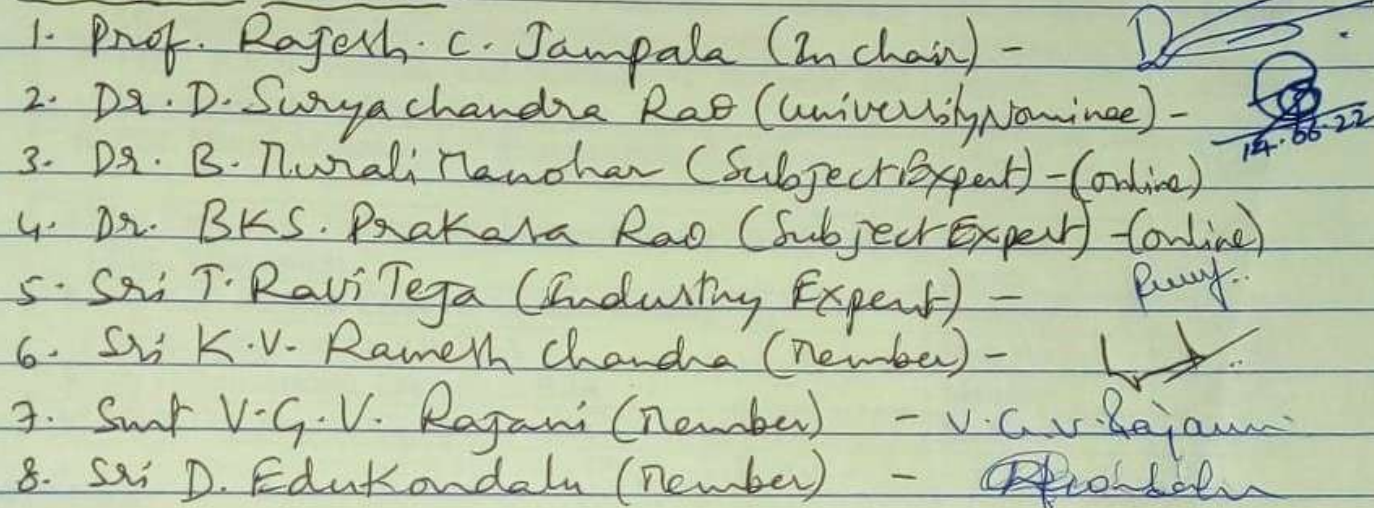 1. Prof. Rajesh. C. Jampala (In chair) -
2. Dr. D. Surya chandra Rao (University Nominee) -
14.06.22
3. Dr. B. Murali Manohar (Subject Expert) - (online)
4. Dr. BKS. Prakasa Rao (Subject Expert) - (online)
5. Sri T. Ravi Teja (Industry Expert) -
6. Sri K.V. Ramesh Chandra (Member) -
7. Smt V.G.V. Rajani (Member) - V.G.V. Rajani
8. Sri D. Edukondalu (Member) -